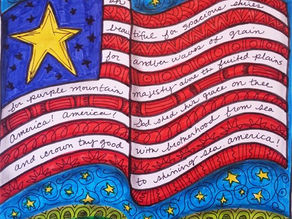 oh
beautiful for spacious skies
for amber waves of grain
for purple mountain majesty above the fruited plains
America! America! God shed his grace on thee
and crown thy good with brotherhood from sea
to shining sea america!